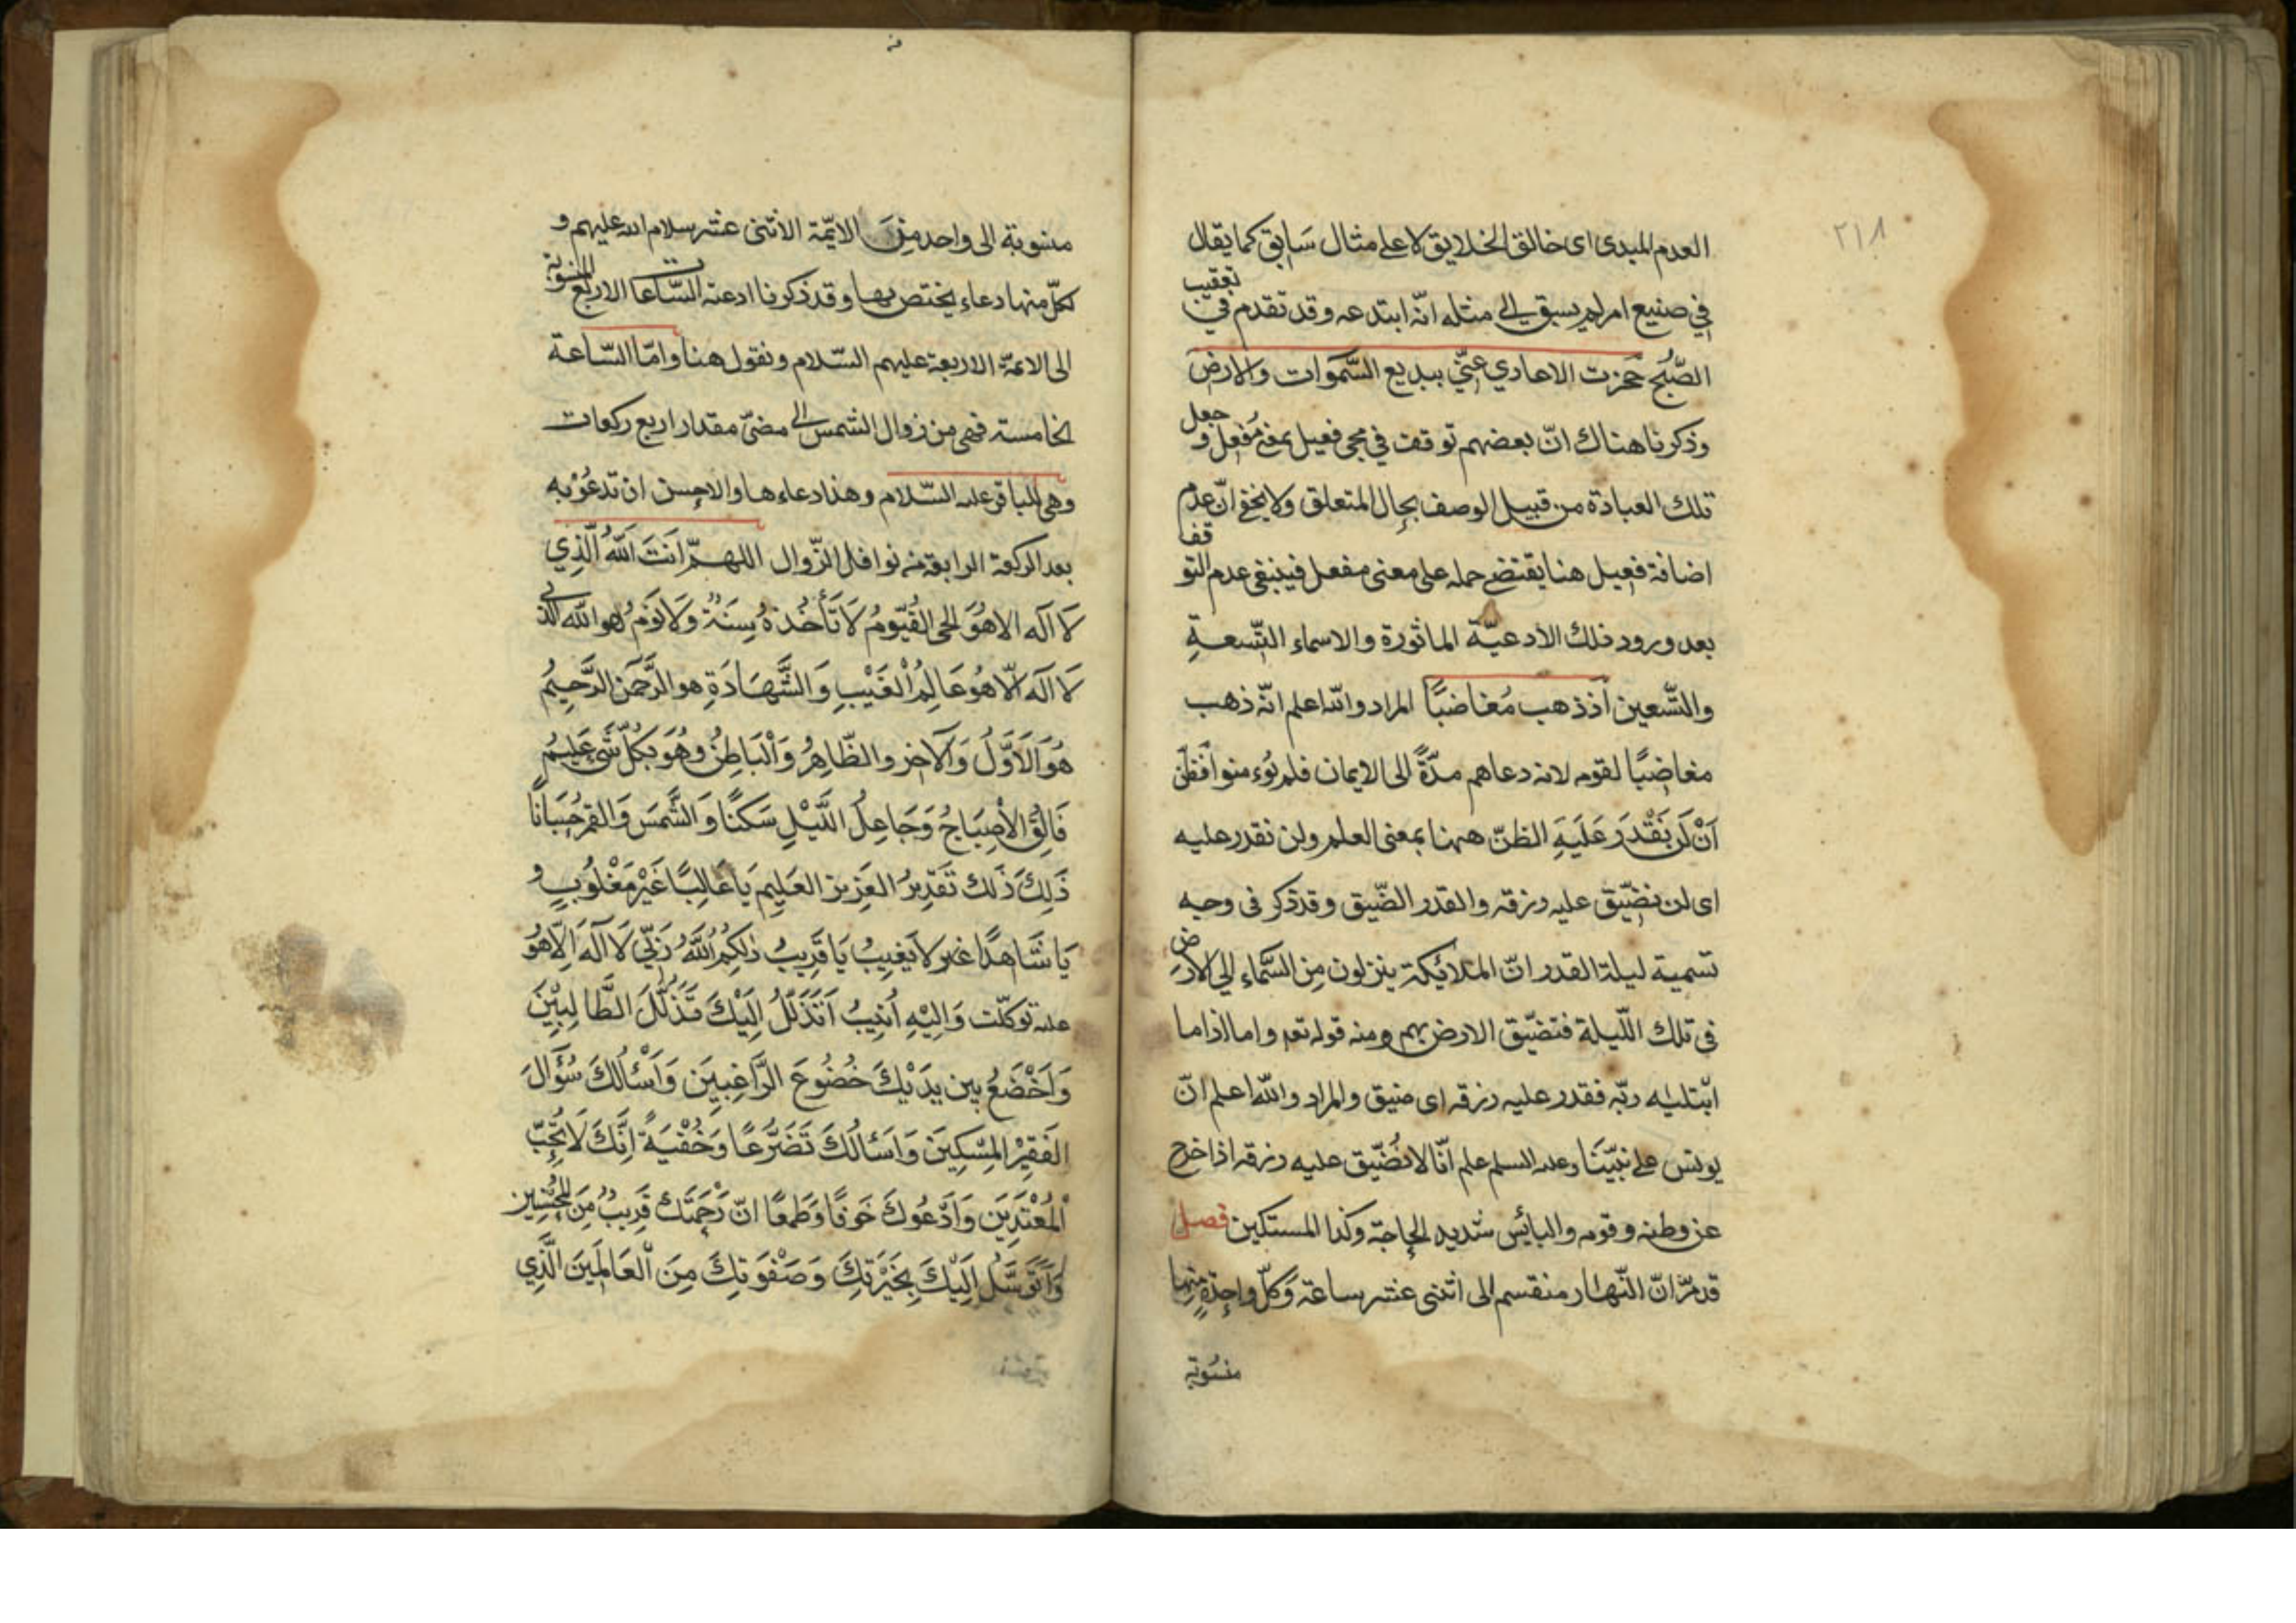 ٢١٨
العدم المبدى اى خالق الخلايق لا على مثال سَابق كما يقال
في صنيع امر لم يسبق الى مثله انّه ابتدعه وقد تقدم في تعقيب
الصّبح حجزت الاعادي عنّي ببديع السّموات والارض
وذكرنا هناك انّ بعضهم توقف في مجى فعيل بمعنى مُفعِل وجعل
تلك العبادة من قبيل الوصف بحال المتعلق ولا يخفى انّ عدم
اضافة فعيل هنا يقتضى حمله على معنى مفعل فينبغى عدم التوقف
بعد ورود ذلك الادعيّة الماثورة والاسماء التّسعةِ
والتّسعين اذ ذهب مُغاضبًا المراد والله اعلم انّه ذهب
مغاضِبًا لقومه لانه دعاهم مدّةً الى الايمان فلم يؤمنوا فَظَنّ
اَنْ لَن نَقْدِرَ عَلَيَهِ الظنّ ههنا بمعنى العلم ولن نقدر عليه
اى لن نضيّق عليه رزقه والقدر الضّيق وقد ذكر فى وجه
تسمية ليلة القدر انّ الملائكة ينزلون مِن السَّماء الى الارضِ
فى تلك اللّيلة فتضيّق الارض بهم ومنه قوله تعه واما اذاما
ابْتليٰه ربّه فقدر عليه رزقه اى ضيق والمراد والله اعلم انّ
يونس على نبيّنَا وعليه السلم علم انّا لا نُضّيق عليه رزقه اذا خرج
عن وطنه وقومه والبائِس شديد الحاجة وكذا المستكين فصل
قد مرّ انّ النّهار منقسم الى اثنى عشر ساعة وَكلّ واحِدةٍ منها
منسُوبة
منسوبة الى واحد مِنَ الايمّة الاثنى عشر سلام الله عليهم و
لكلّ منها دعاء يختص بها وقد ذكرنا ادعية السّاعات الاربع المنسوبة
الى الائمّة الاربعة عليهم السّلام ونقول هنا وامّا السّاعة
الخامسة فهى من زوال الشمس الى مضىّ مقدار اربع ركعات
وهى للباقر عليه السّلام وهذا دعاءها والاحسن ان تدعُوْ به
بعد الركعة الرابعة من نوافل الزّوال اللهمّ اَنتَ اَللهُ الَّذِي
لَا اَله الا هُوَ الحى القُيّومُ لَا تَأْخُذهُ سِنَةٌ وَلَا نَوَمٌ هو الله الّذى
لَا اَله اّلا هُو عَالِمُ اْلغَيْبِ وَالشَّهَادَةِ هو الرَّحمَن الرَّحِيمُ
هُوَ الَاَوّلُ وَالَاخِر والظّاِهرُ وَالْبَاطِنُ وهُوَ بِكُلّ شَىْءٍ عَليمٌ
فَالِقُ الْأصِبَاحُ وَجَاعِلُ اللَّيْلِ سَكنًا وَالشَّمَسَ وَالقمَر حُسَبَانًا
ذَلِكَ ذَلك تَقَدِيرُ العَزِيز العَلِيم يَا غَالِبًا غَيْرَ مَغْلوُبٍ و
يَا شَاهدًا غير لَا يَغيِبُ يَا قَرِيبُ ذلِكُمُ اللَّهُ رَبّي لَا اله اِلّا هُوَ
عليه توكلّت وَاليْهِ اُنيبُ اَتَذَلَّلُ اِلَيْكَ تَذَلُّلَ الطَّا لِبِيْنَ
وَاَخْضَعُ بين يدَيْكَ خُضُوعَ الرَّاغِبيَن وَاَسْئَالُكَ سُؤَالَ
الفَقِيْرِ المِسْكِينَ وَاَسَئالُكَ تَضَرّعًا وَخُفْيَةً اِنَّكَ لَا تُحِبّ
اْلمُعْتَدِيَن وَاَدّعُوكَ خَوفًا وَطَمعًا انّ رَحَمتَكَ قَرِيبٌ مِنَ المُحْسِنِين
وَاَتَوَسَّلُ اِلَيْكَ بِخَيَرْتِكَ وَصَفْوَتِكَ مِنَ اْلعَالَمَينَ الَّذِي